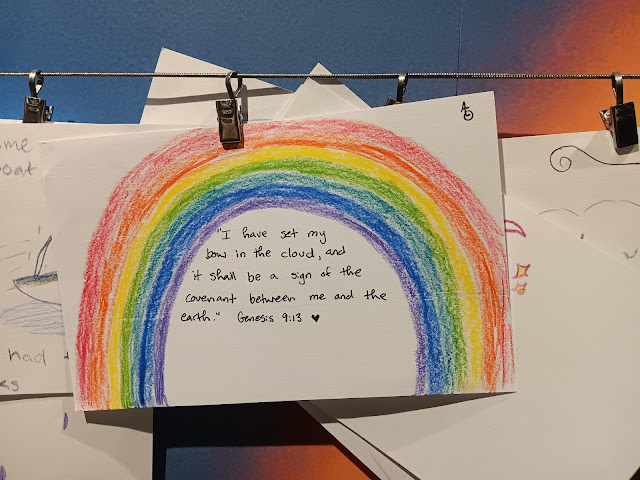 "I have set my
bow in the cloud, and
it shall be a sign of the
covenant between me and the
earth." Genesis 9:13 ♥
had